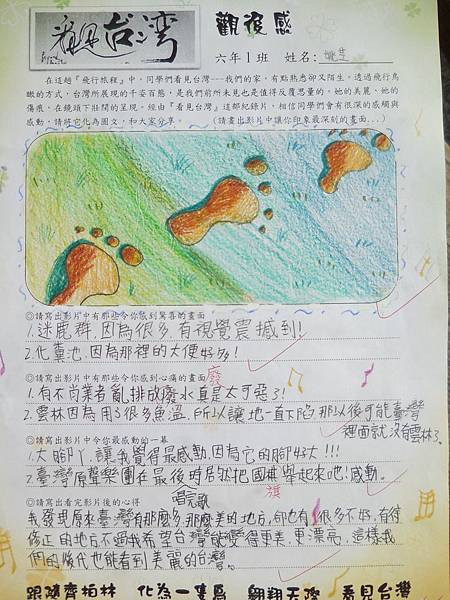 看見台灣
觀後感
六年1班 姓名:
在這趟『飛行旅程』中,同學們看見台灣---我們的家,有點熟悉卻又陌生,透過飛行鳥
瞰的方式,台灣所展現的千姿百態,是我們前所未見也是值得反覆思量的,她的美麗、她的
傷痕,在鏡頭下壯闊的呈現。經由『看見台灣』這部紀錄片,相信同學們會有很深的感觸與
感動,請將它化為圖文,和大家分享。 (請畫出影片中讓你印象最深刻的畫面...)
◎請寫出影片中有那些令你感到驚喜的畫面
1.迷鹿群,因為很多,有視覺震撼到!
2.化糞池,因為那裡的大便好多!
◎請寫出影片中有那些令你感到心痛的畫面
廢
1.有不肖業者亂排放廢水真是太可惡了!
2.雲林因為用了很多魚溫,所以讓地一直下陷,那以後可能臺灣
裡面就沒有雲林了。
◎請寫出影片中令你最感動的一幕
1.大腳丫,讓我覺得最感動,因為它的腳好大!!!
2.臺灣原聲樂團在最後時居然把國棋舉起來吔!感動。
唱完歌
旗
◎請寫出看完影片後的心得
我發現原來臺灣有那麼多,那麼美的地方,卻也有很多不好,有待
修正的地方不過我希望台灣能變得更美,更漂亮,這樣我
們的後代也能看到美麗的台灣。
跟隨齊柏林 化為一隻鳥 翱翔天際 看見台灣